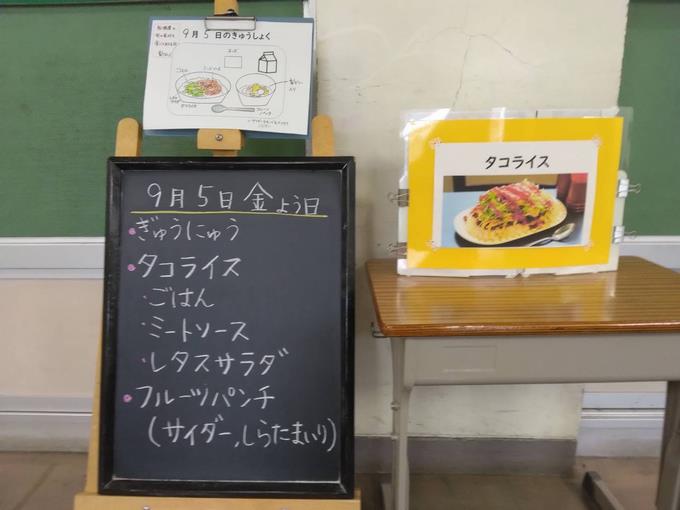 9月5日のきゅうしょく
9月5日金よう日
ぎゅうにゅう
タコライス
・ごはん
・ミートソース
・レタスサラダ
フルーツパンチ
(サイダー,しらたまいり)
タコライス